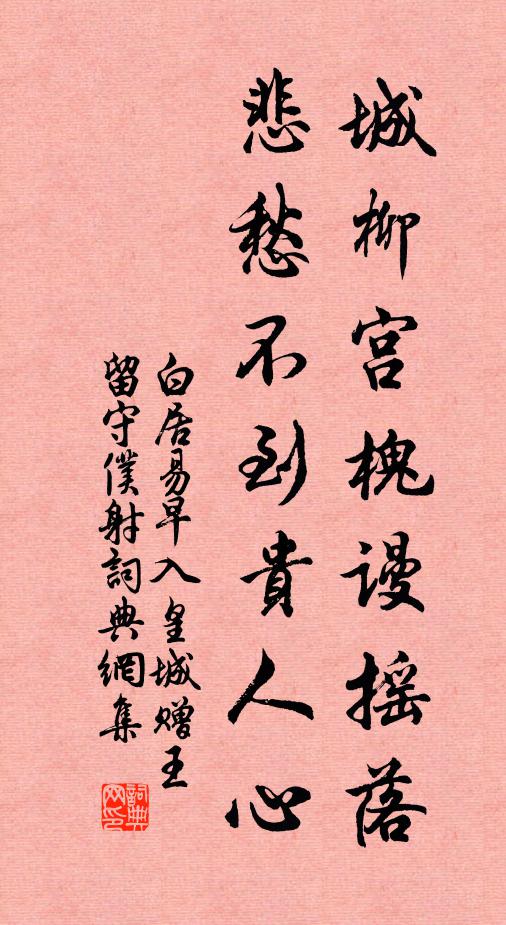 城柳宫槐謾摇落
悲愁不到貴人心
白居易早入皇城赠王
留守僕射詞典網集
詞典
网印